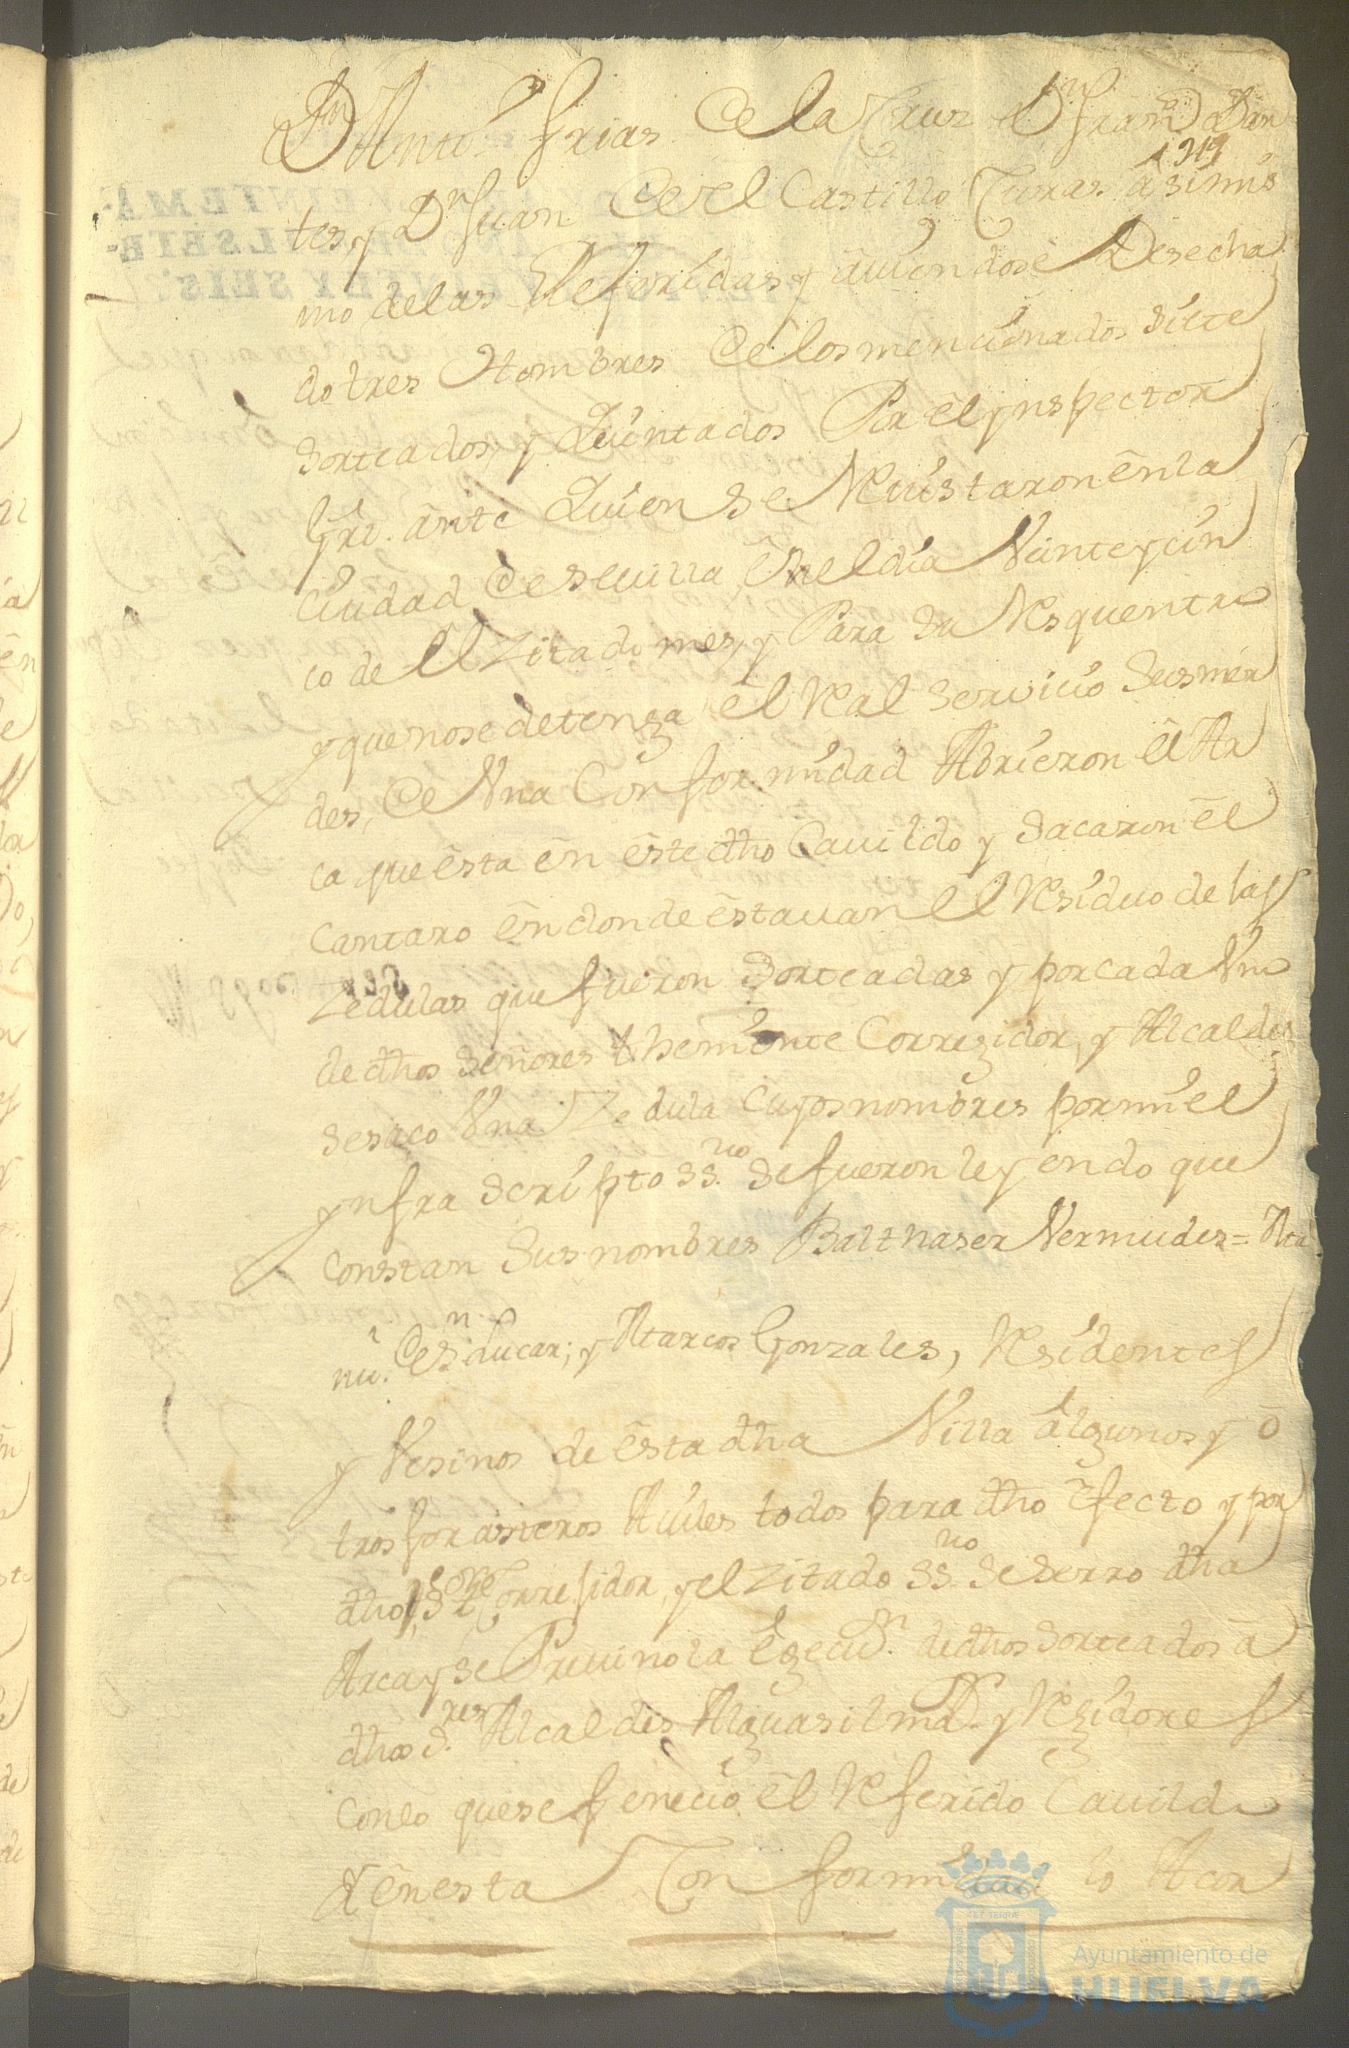 Dn Anto. Frias de la Cruz Dn Frano. Dan
219
tes, y Dn Juan del Castillo Curas. asimis
mo de las Referidas y auiendose Desecha
do tres Hombres de los mencionados Siete
Sorteados, y Quintados Por el ynspector
Gri. ante Quien se Reuistaron en la
Ciudad de Seuilla, en el dia Veinte y cin
co de el Zitado mes, y Para su
y que no se detenga el Real Servicio Sus mer
des, de Vna Conformidad Abrieron el Ar
ca que esta en este dho Cauildo y Sacaron el
Cantaro en donde estauan el Residuo de las
Zedulas que fueron Sorteadas y por cada Vno
de dhos Señores Theniente Corregidor, y Alcaldes
se saco Vna Zedula cuyos nombres por mi el
ynfra scripto ss.no se fueron leyendo que
constan Sus nombres Balthaser Vermudes =
de Sn lucar; y Marcos Gonzales, Residentes
y Vesinos de esta dha Villa algunos y o
tros forasteros Auiles todos para dho efecto y por
dho Sor The Corregidor, y el Zitado ss.no se serro dha
Arca y se Preuino la dhos Sorteados a
dhos S.res Alcaldes Alguasil mor. y Regidores
Con lo que se fenecio el Referido Cauildo
y en esta Conformidad lo Acor
Ayuntamiento de
HUELVA